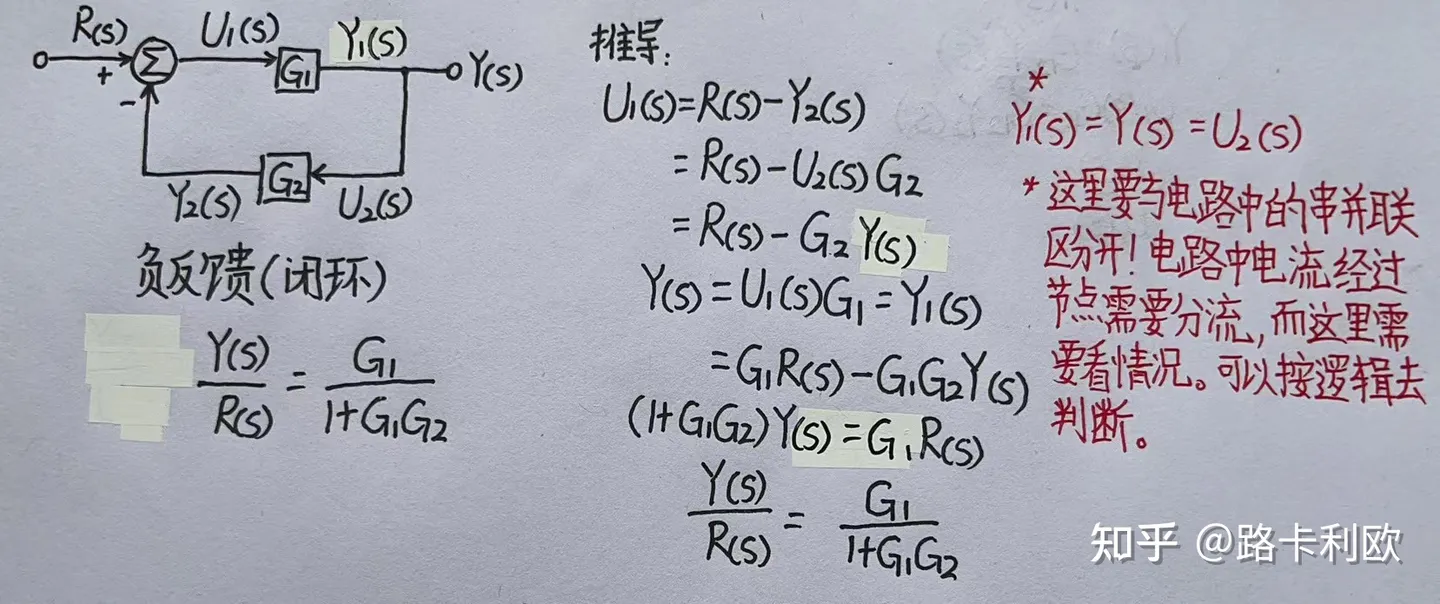 R(s)
U₁(s)
Y₁(s)
+
Σ
G₁
Y(s)
-
Y₂(s)
G₂
U₂(s)
负反馈(闭环)
Y(s)/R(s) = G₁/(1+G₁G₂)
推导:
U₁(s)=R(s)-Y₂(s)
=R(s)-U₂(s)G₂
=R(s)-G₂Y(s)
Y(s)=U₁(s)G₁=Y₁(s)
=G₁R(s)-G₁G₂Y(s)
(1+G₁G₂)Y(s)=G₁R(s)
Y(s)/R(s) = G₁/(1+G₁G₂)
*
Y₁(s)=Y(s)=U₂(s)
*这里要与电路中的串并联
区分开!电路中电流经过
节点需要分流,而这里需
要看情况。可以按逻辑去
判断。
知乎 @路卡利欧